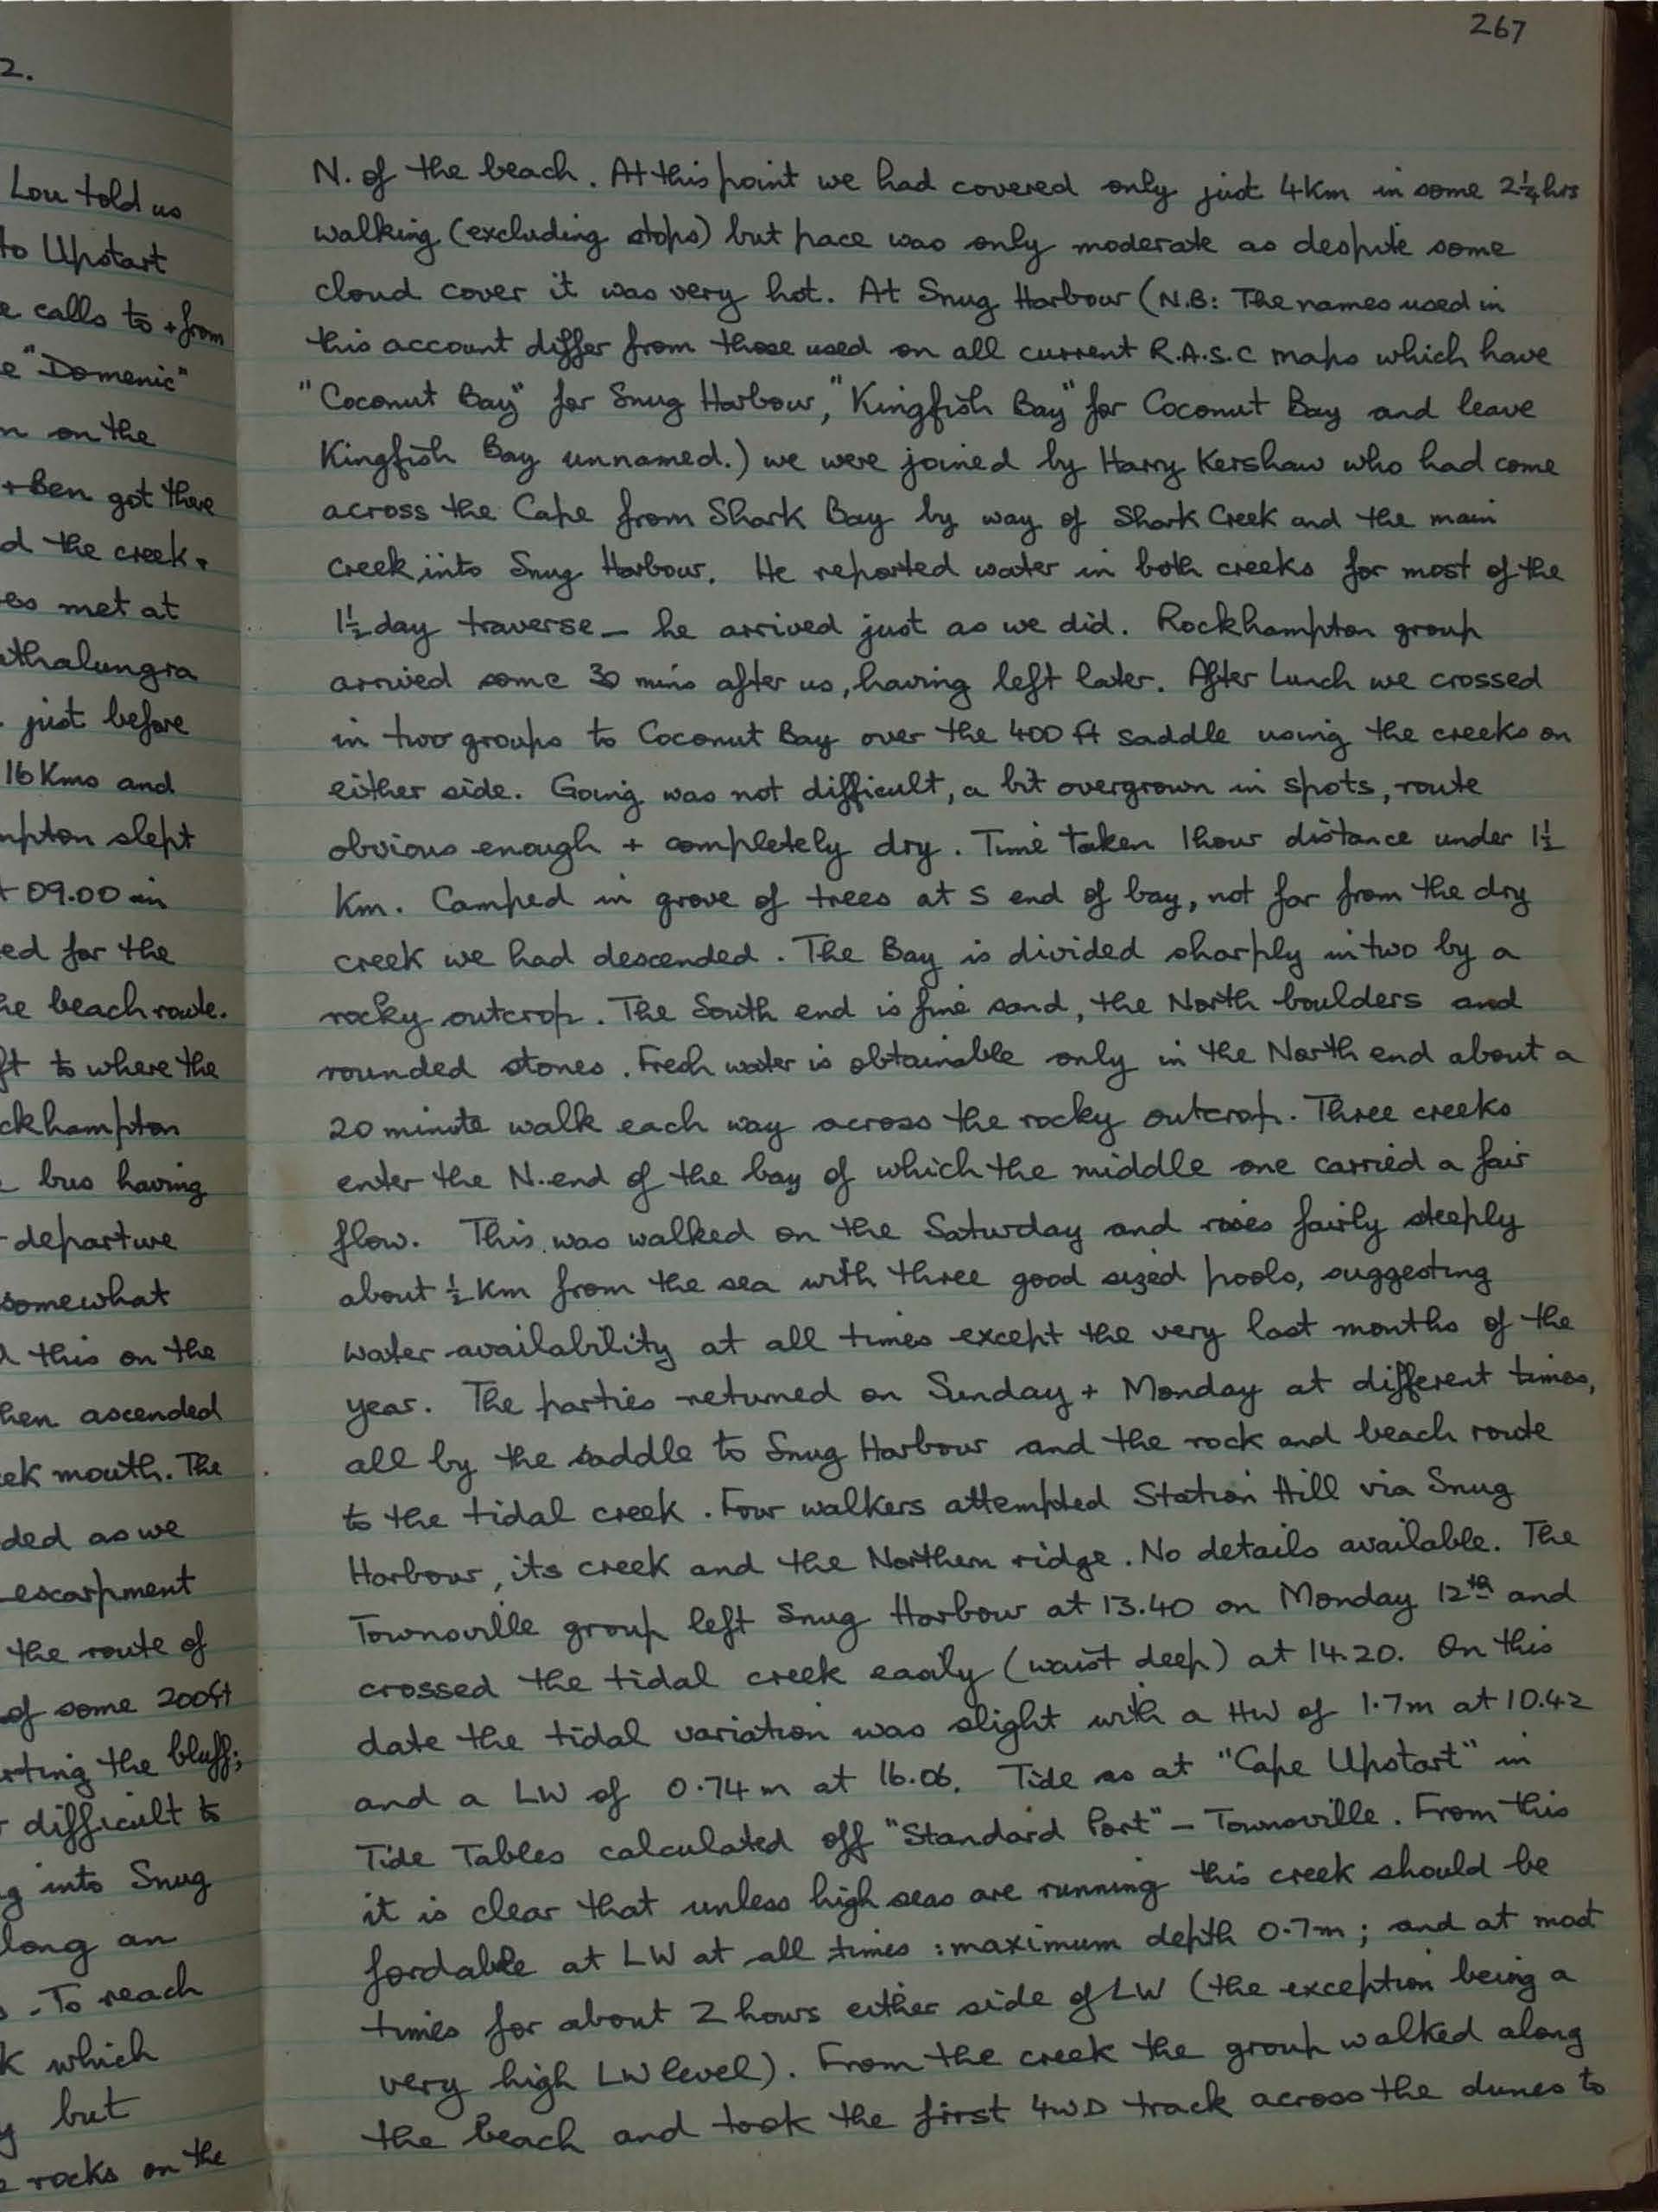 2.
Lou told us
to Upstart
calls to + from
"Domenic"
on the
+ Ben got there
the creek.
met at
just before
16 Kms and
slept
09.00 in
for the
beach route.
to where the
bus having
departure
somewhat
this on the
ascended
mouth. The
as we
escarpment
the route of
of some 200ft
the bluff;
difficult to
into Snug
long an
. To reach
which
but
rocks on the
267
N. of the beach. At this point we had covered only just 4Km in some 2¼hrs
walking (excluding stops) but pace was only moderate as despite some
cloud cover it was very hot. At Snug Harbour (N.B: The names used in
this account differ from those used on all current R.A.S.C maps which have
"Coconut Bay" for Snug Harbour, "Kingfish Bay" for Coconut Bay and leave
Kingfish Bay unnamed.) we were joined by Harry Kershaw who had come
across the Cape from Shark Bay by way of Shark Creek and the main
creek into Snug Harbour. He reported water in both creeks for most of the
1½ day traverse - he arrived just as we did. Rockhampton group
arrived some 30 mins after us, having left later. After Lunch we crossed
in two groups to Coconut Bay over the 400 ft saddle using the creeks on
either side. Going was not difficult, a bit overgrown in spots, route
obvious enough + completely dry. Time taken 1hour distance under 1½
Km. Camped in grove of trees at S end of bay, not far from the dry
creek we had descended. The Bay is divided sharply in two by a
rocky outcrop. The South end is fine sand, the North boulders and
rounded stones. Fresh water is obtainable only in the North end about a
20 minute walk each way across the rocky outcrop. Three creeks
enter the N. end of the bay of which the middle one carried a fair
flow. This was walked on the Saturday and rises fairly steeply
about ½ Km from the sea with three good sized pools, suggesting
water availability at all times except the very last months of the
year. The parties returned on Sunday + Monday at different times,
all by the saddle to Snug Harbour and the rock and beach route
to the tidal creek. Four walkers attempted Station Hill via Snug
Harbour, its creek and the Northern ridge. No details available. The
Townsville group left Snug Harbour at 13.40 on Monday 12th and
crossed the tidal creek easily (waist deep) at 14.20. On this
date the tidal variation was slight with a HW of 1.7m at 10.42
and a LW of 0.74 m at 16.06. Tide as at "Cape Upstart" in
Tide Tables calculated off "Standard Port" - Townsville. From this
it is clear that unless high seas are running this creek should be
fordable at LW at all times : maximum depth 0.7m ; and at most
times for about 2 hours either side of LW (the exception being a
very high LW level). From the creek the group walked along
the beach and took the first 4WD track across the dunes to